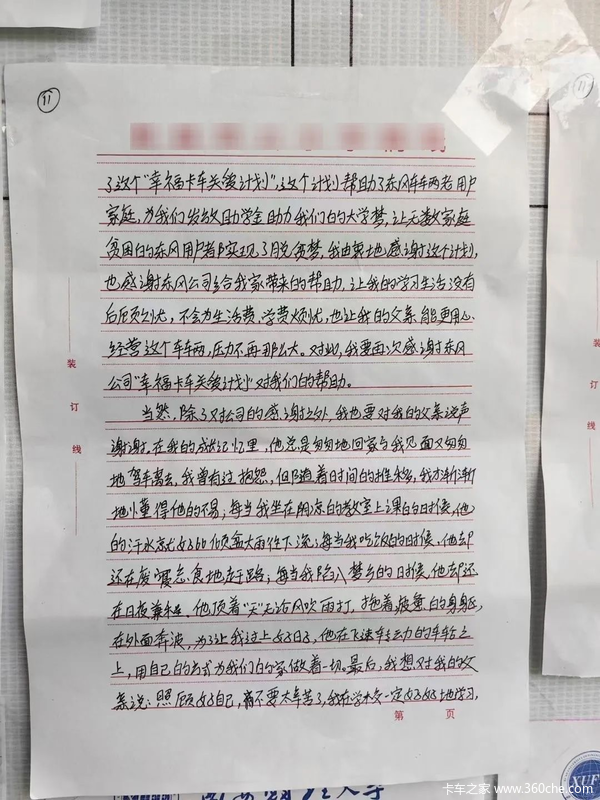 11
11
了这个“幸福卡车关爱计划”,这个计划帮助了东风车辆老用户
家庭,为我们发放助学金助力我们的大学梦,让无数家庭
贫困的东风用户都实现了脱贫梦,我由衷地感谢这个计划,
也感谢东风公司给我家带来的帮助。让我的学习生活没有
后顾之忧,不会为生活费、学费烦忧,也让我的父亲能更用心
经营这个车辆,压力不再那么大。对此,我要再次感谢东风
公司“幸福卡车关爱计划”对我们的帮助。
当然,除了对公司的感谢之外,我也要对我的父亲说声
谢谢。在我的成长记忆里,他总是匆匆地回家与我见面又匆匆
地驾车离去,我曾有过抱怨,但随着时间的推移,我才渐渐
地懂得他的不易,每当我坐在阴凉的教室上课的时候,他
的汗水就好比倾盆大雨往下流;每当我吃饭的时候,他却
还在废寝忘食地赶路;每当我陷入梦乡的时候,他却还
在日夜兼程。他顶着“天”无论风吹雨打,拖着疲惫的身躯,
在外面奔波,为了让我过上好日子,他在飞速转动的车轮之
上,用自己的方式为我们的家做着一切。最后,我想对我的父
亲说:照顾好自己,不要太辛苦了,我在学校一定好好地学习,
第 页
装
订
线
装
订
线
XUF
卡车之家 www.360che.com